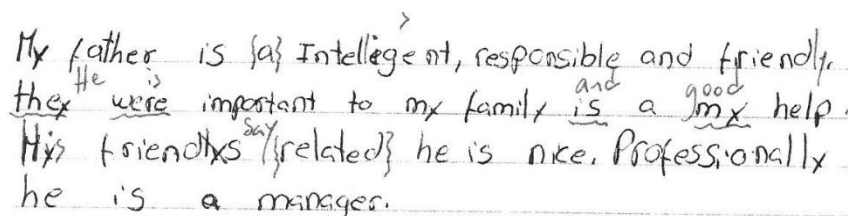 My father is {a} Intellegent, responsible and friendly.
He is and good
they were important to my family is a my help.
His friendlys say {related} he is nice. Professionally
he is a manager.